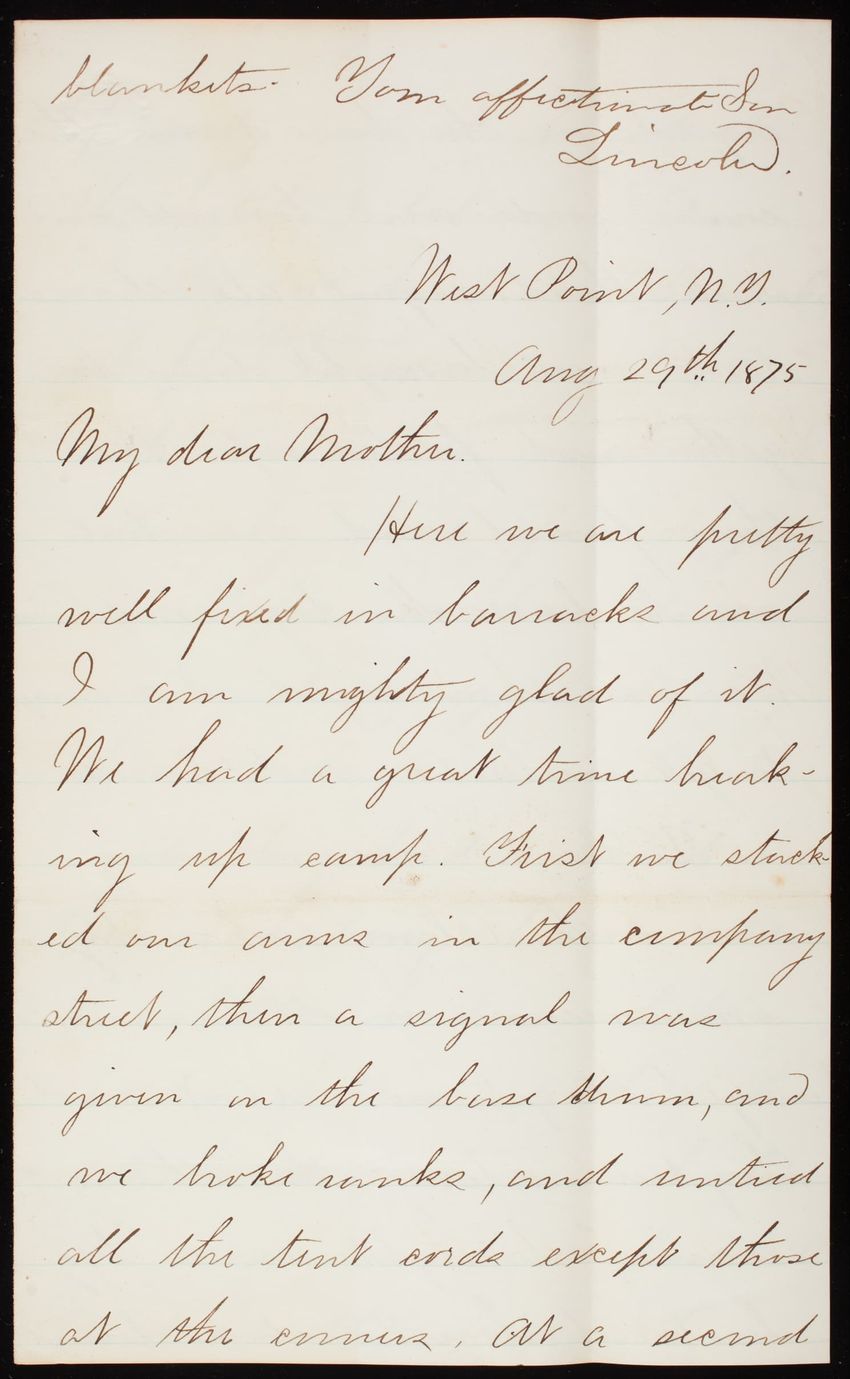 blankets. Your affectionate Son
Lincoln.
West Point, N.Y.
Aug 29th 1875
My dear Mother.
Here we are pretty
well fixed in barracks and
I am mighty glad of it.
We had a great time break-
ing up camp. First we stack-
ed our arms in the company
street, then a signal was
given on the base drum, and
we broke ranks, and untied
all the tent cords except those
at the corners. At a second